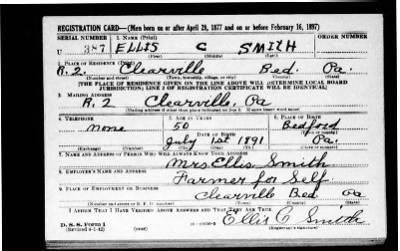 REGISTRATION CARD—(Men born on or after April 28, 1877 and on or before February 16, 1897)
SERIAL NUMBER 1. NAME (Print) ORDER NUMBER
U 387 ELLIS C SMITH
(First) (Middle) (Last)
2. PLACE OF RESIDENCE (Print)
R. 2. Clearville Bed. Pa.
(Number and street) (Town, township, village, or city) (County) (State)
[THE PLACE OF RESIDENCE GIVEN ON THE LINE ABOVE WILL DETERMINE LOCAL BOARD
JURISDICTION; LINE 2 OF REGISTRATION CERTIFICATE WILL BE IDENTICAL]
3. MAILING ADDRESS
R. 2 Clearville, Pa
[Mailing address if other than place indicated on line 2. If same insert word same]
4. TELEPHONE 5. AGE IN YEARS 6. PLACE OF BIRTH
none 50 Bedford
DATE OF BIRTH (Town or county)
July 1st 1891 Pa.
(Exchange) (Number) (Mo.) (Day) (Yr.) (State or country)
7. NAME AND ADDRESS OF PERSON WHO WILL ALWAYS KNOW YOUR ADDRESS
Mrs Ellis Smith
8. EMPLOYER'S NAME AND ADDRESS
Farmer for Self
9. PLACE OF EMPLOYMENT OR BUSINESS
Clearville Bed Pa
(Number and street or R. F. D. number) (Town) (County) (State)
I AFFIRM THAT I HAVE VERIFIED ABOVE ANSWERS AND THAT THEY ARE TRUE.
D. S. S. Form 1
(Revised 4-1-42) Ellis C Smith
(Registrant's signature)